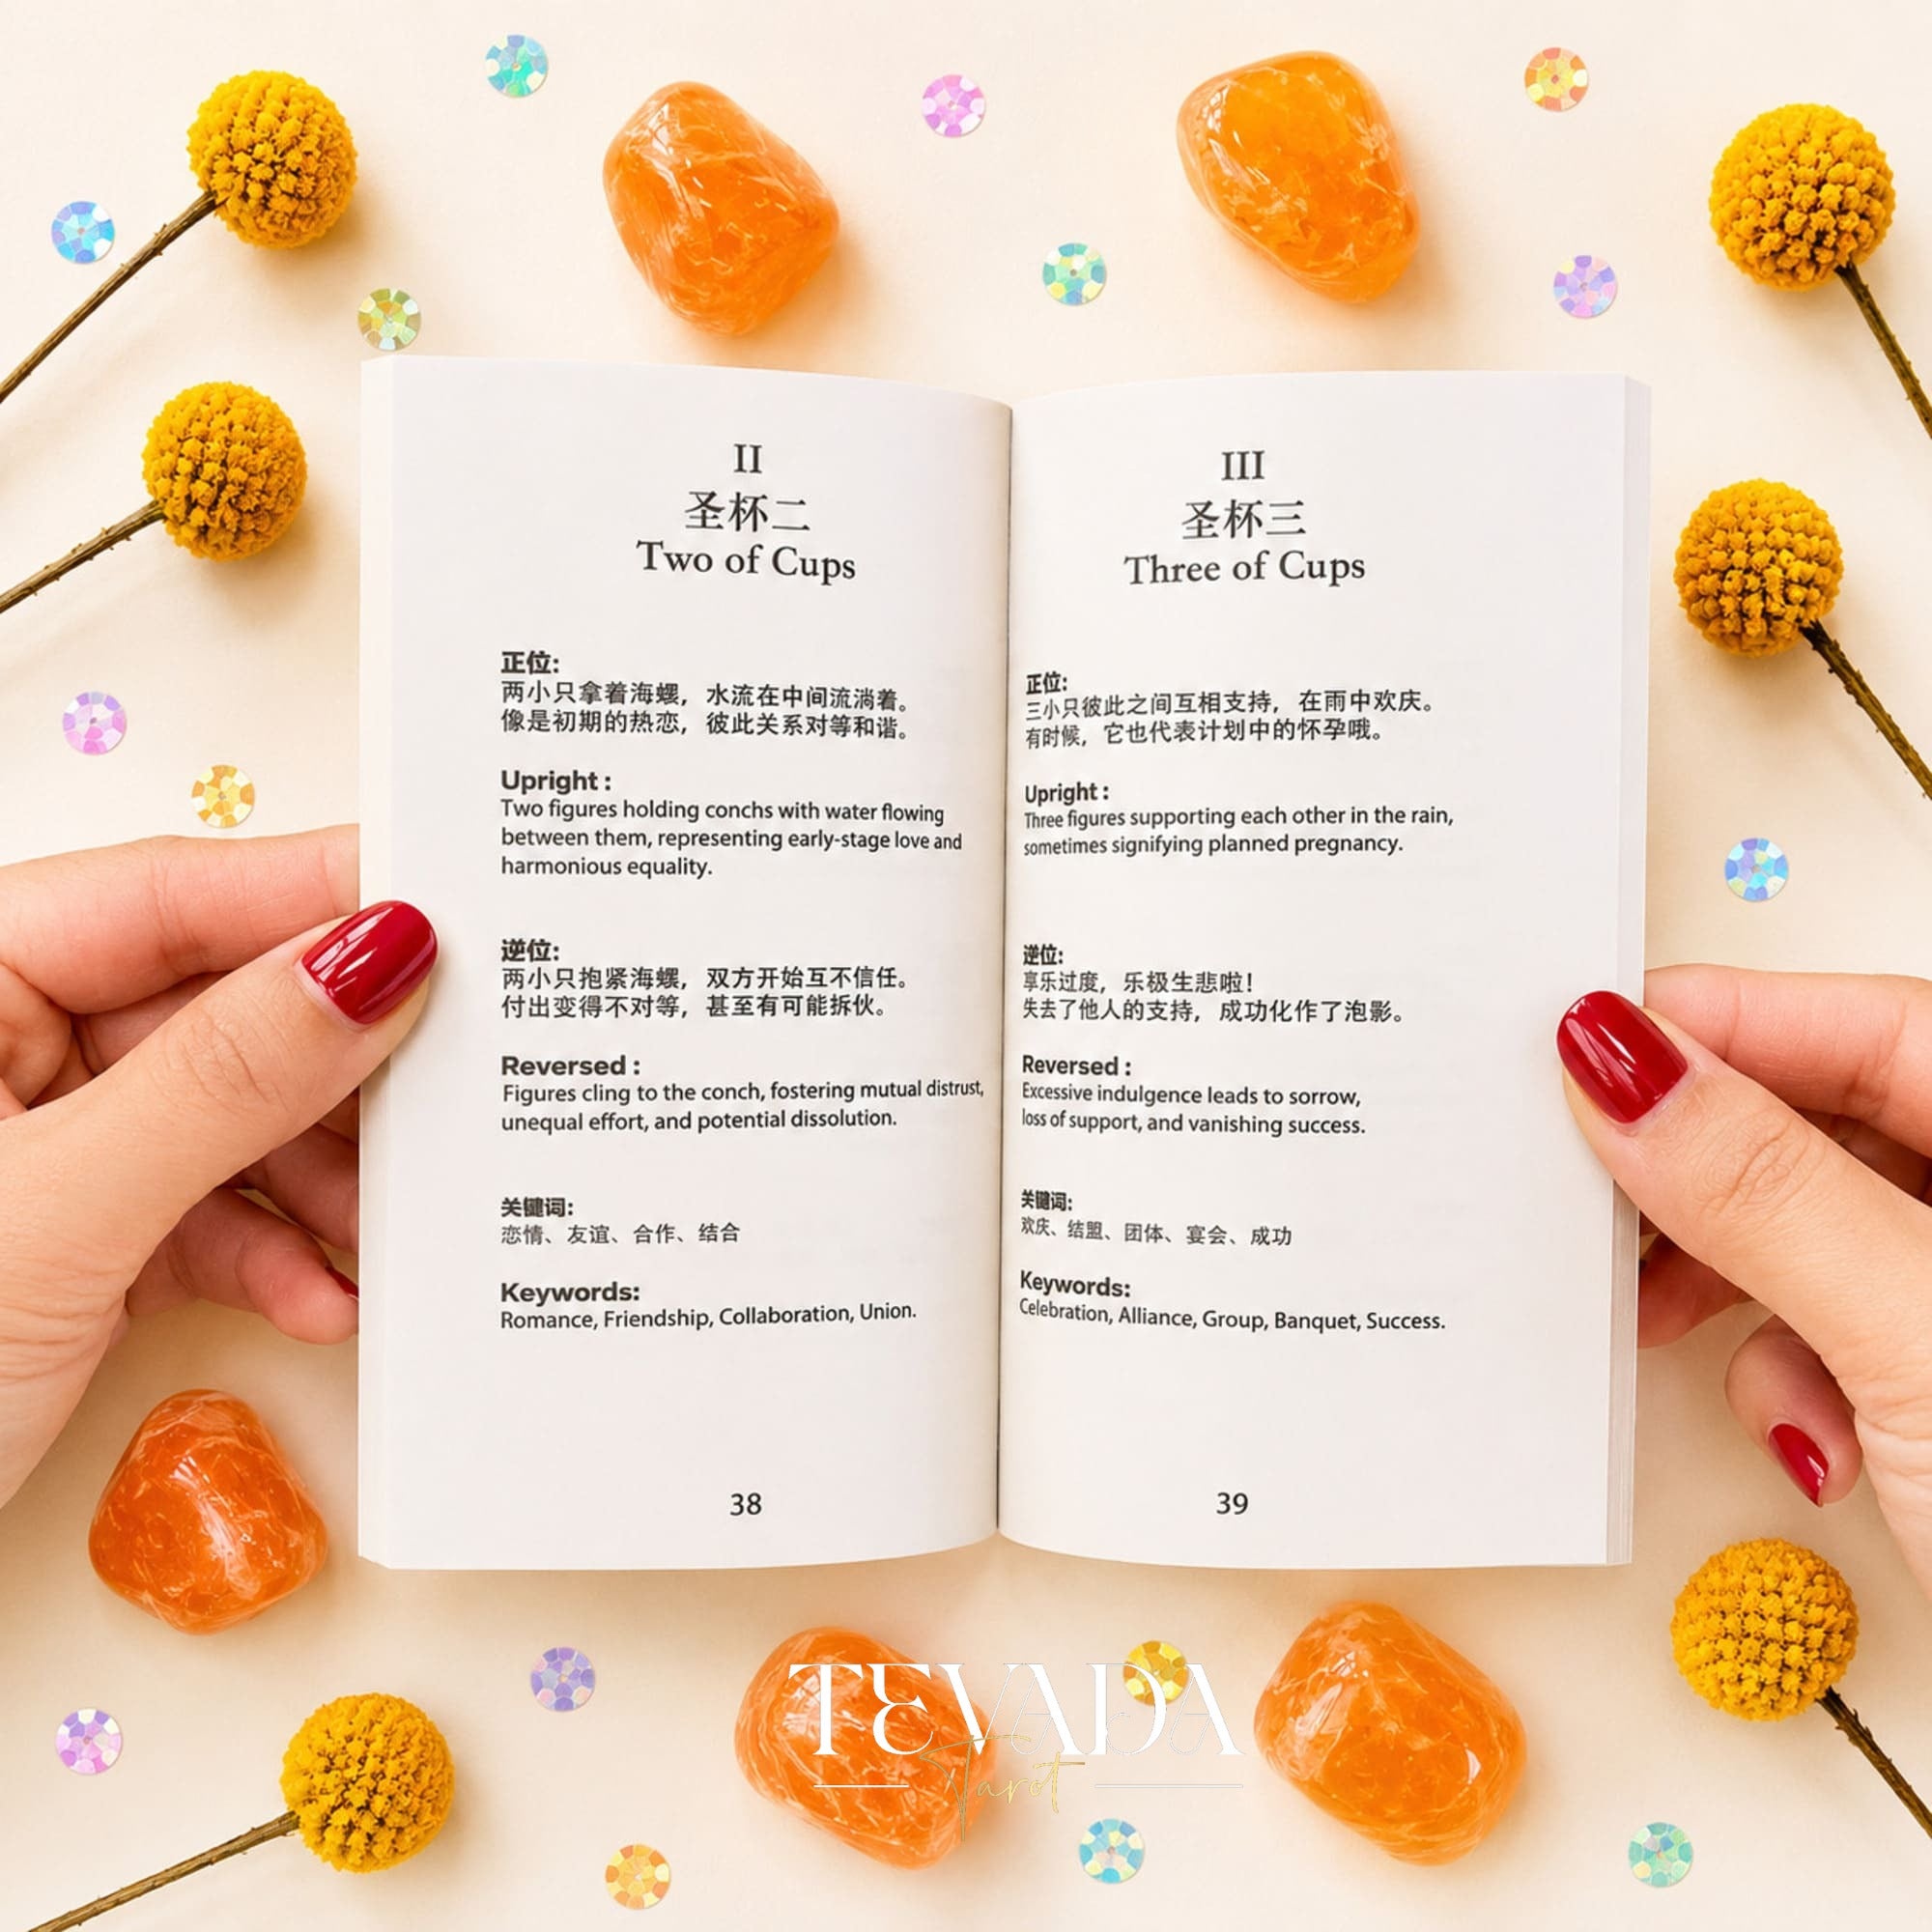 II
圣杯二
Two of Cups
正位:
两小只拿着海螺，水流在中间流淌着。
像是初期的热恋，彼此关系对等和谐。
Upright :
Two figures holding conchs with water flowing
between them, representing early-stage love and
harmonious equality.
逆位:
两小只抱紧海螺，双方开始互不信任。
付出变得不对等，甚至有可能拆伙。
Reversed :
Figures cling to the conch, fostering mutual distrust,
unequal effort, and potential dissolution.
关键词:
恋情、友谊、合作、结合
Keywords:
Romance, Friendship, Collaboration, Union.
38
III
圣杯三
Three of Cups
正位:
三小只彼此之间互相支持，在雨中欢庆。
有时候，它也代表计划中的怀孕哦。
Upright :
Three figures supporting each other in the rain,
sometimes signifying planned pregnancy.
逆位:
享乐过度，乐极生悲啦！
失去了他人的支持，成功化作了泡影。
Reversed :
Excessive indulgence leads to sorrow,
loss of support, and vanishing success.
关键词:
欢庆、结盟、团体、宴会、成功
Keywords:
Celebration, Alliance, Group, Banquet, Success.
39
TEVADA
Tarot